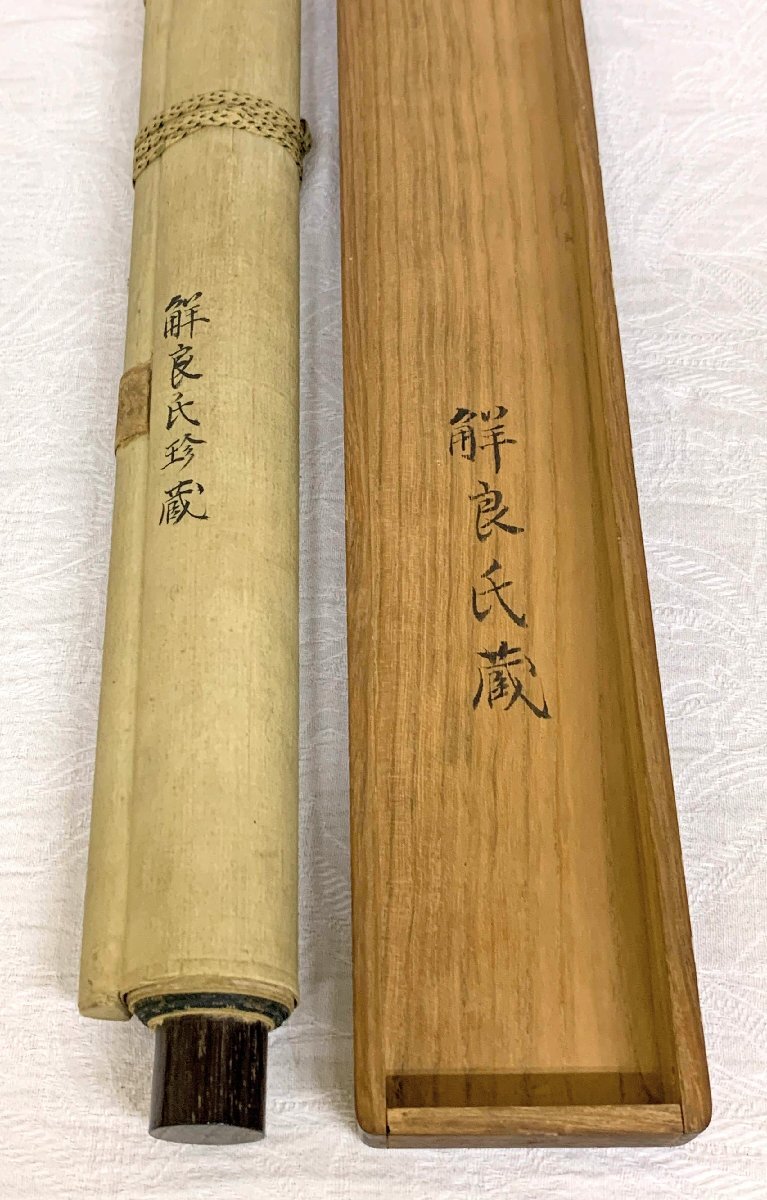 觧良氏珍蔵
觧良氏蔵